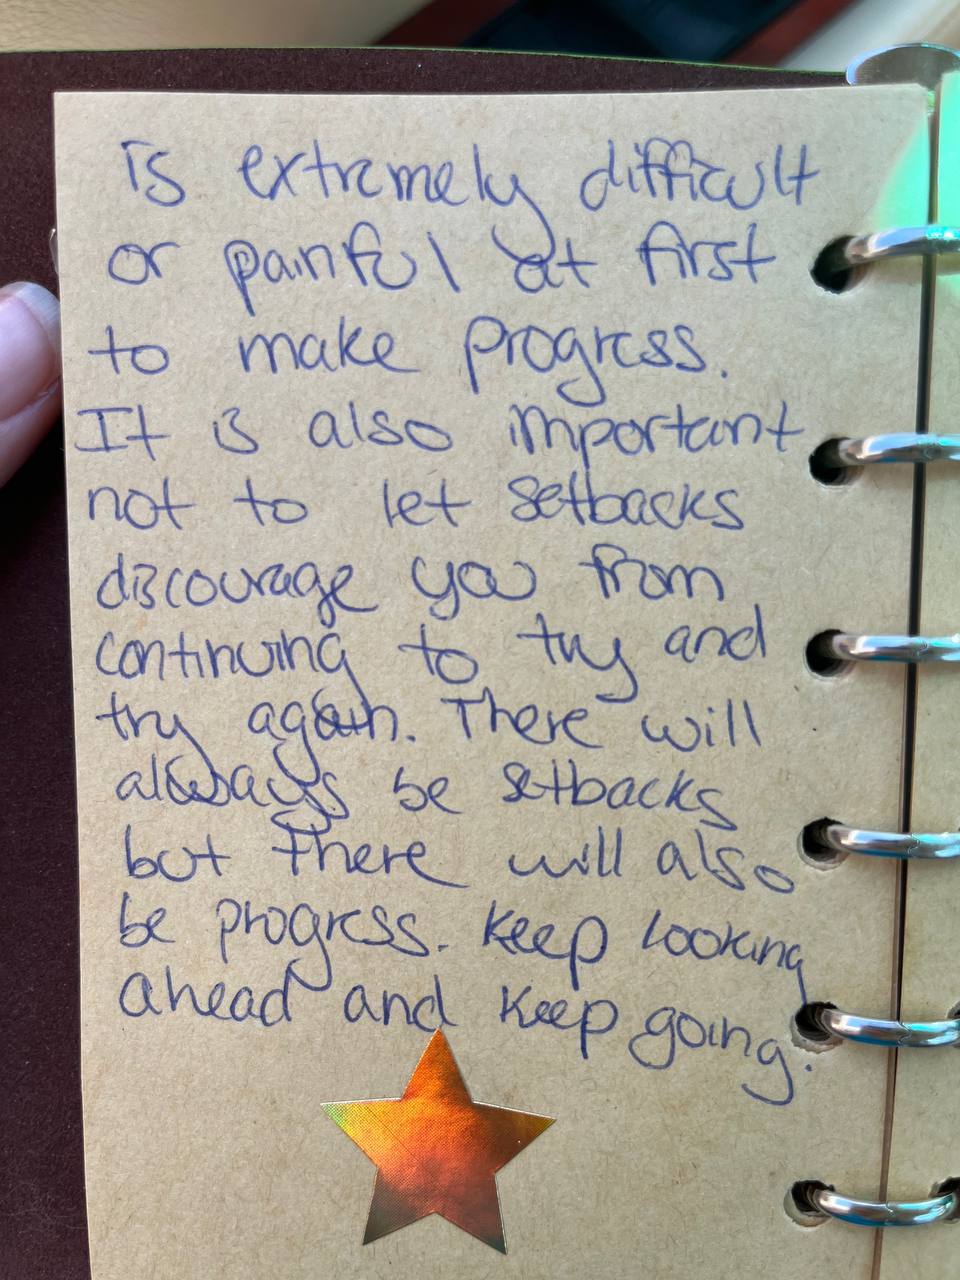 is extremely difficult
or painful at first
to make progress.
It is also important
not to let setbacks
discourage you from
continuing to try and
try again. There will
always be setbacks
but there will also
be progress. Keep looking
ahead and keep going.